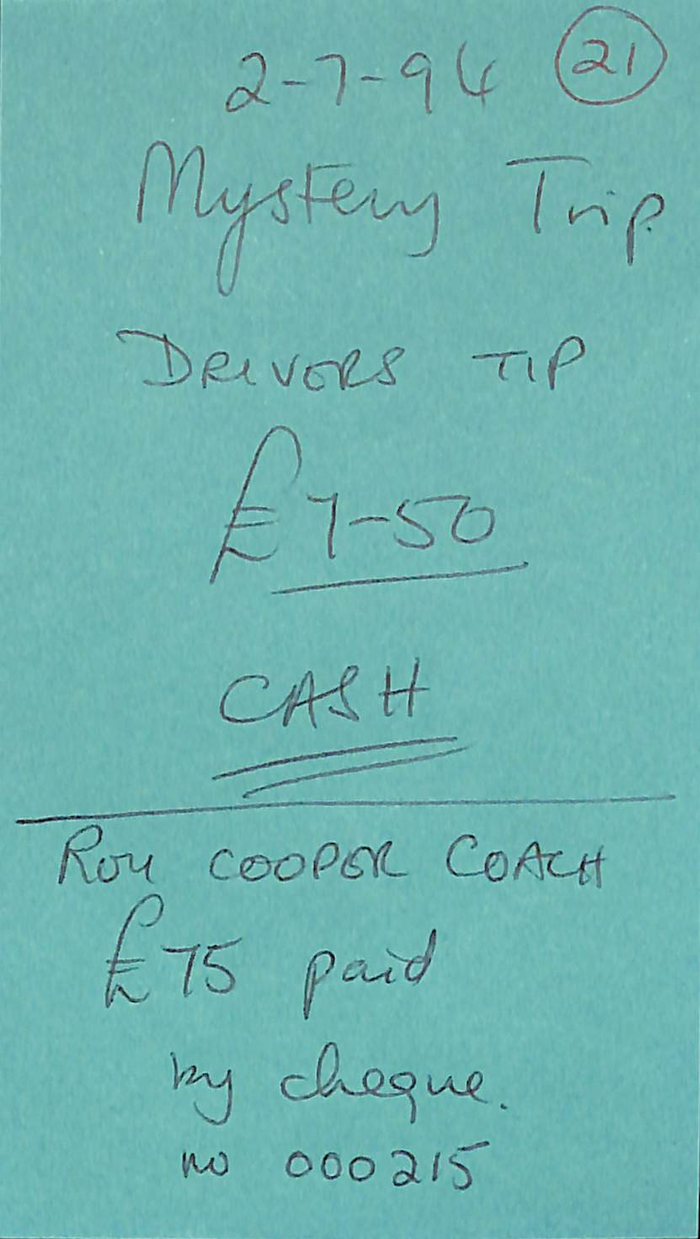 2-7-94 21
Mystery Trip.
DRIVERS TIP
£7-50
CASH
ROY COOPER COACH
£75 paid
by cheque.
no 000215